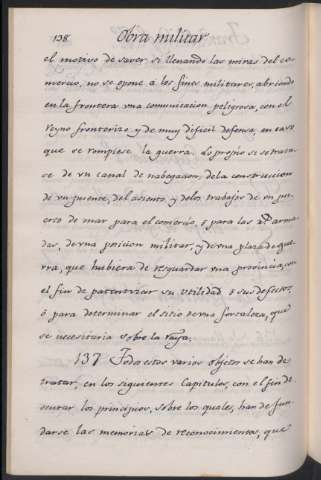 138.
Obra militar
el motivo de saver si llenando las miras del co=
mercio, no se opone à los fines militares, abriendo
en la frontera una comunicacion peligrosa, con el
Reyno fronterizo y de muy dificil defensa, en caso
que se rompiese la guerra. Lo propio si se tratara
se de un canal de nabegacion, de la construccion
de un puente, del asiento, y delos trabajos de un pu
erto de mar para el comercio, ò para las arma
das, de una posicion militar, y de una plaza de gue
rra, que hubiera de resguardar una provincia, con
el fin de patentizar su utilidad ò sus defectos,
ò para determinar el sitio de una fortaleza, que
se necesitaria sobre la raya.
137 Todos estos varios objetos se han de
tratar, en los siguientes Capitulos, con el fin de
sentar los principios, sobre los quales, han de fun
darse las memorias de reconocimientos, que